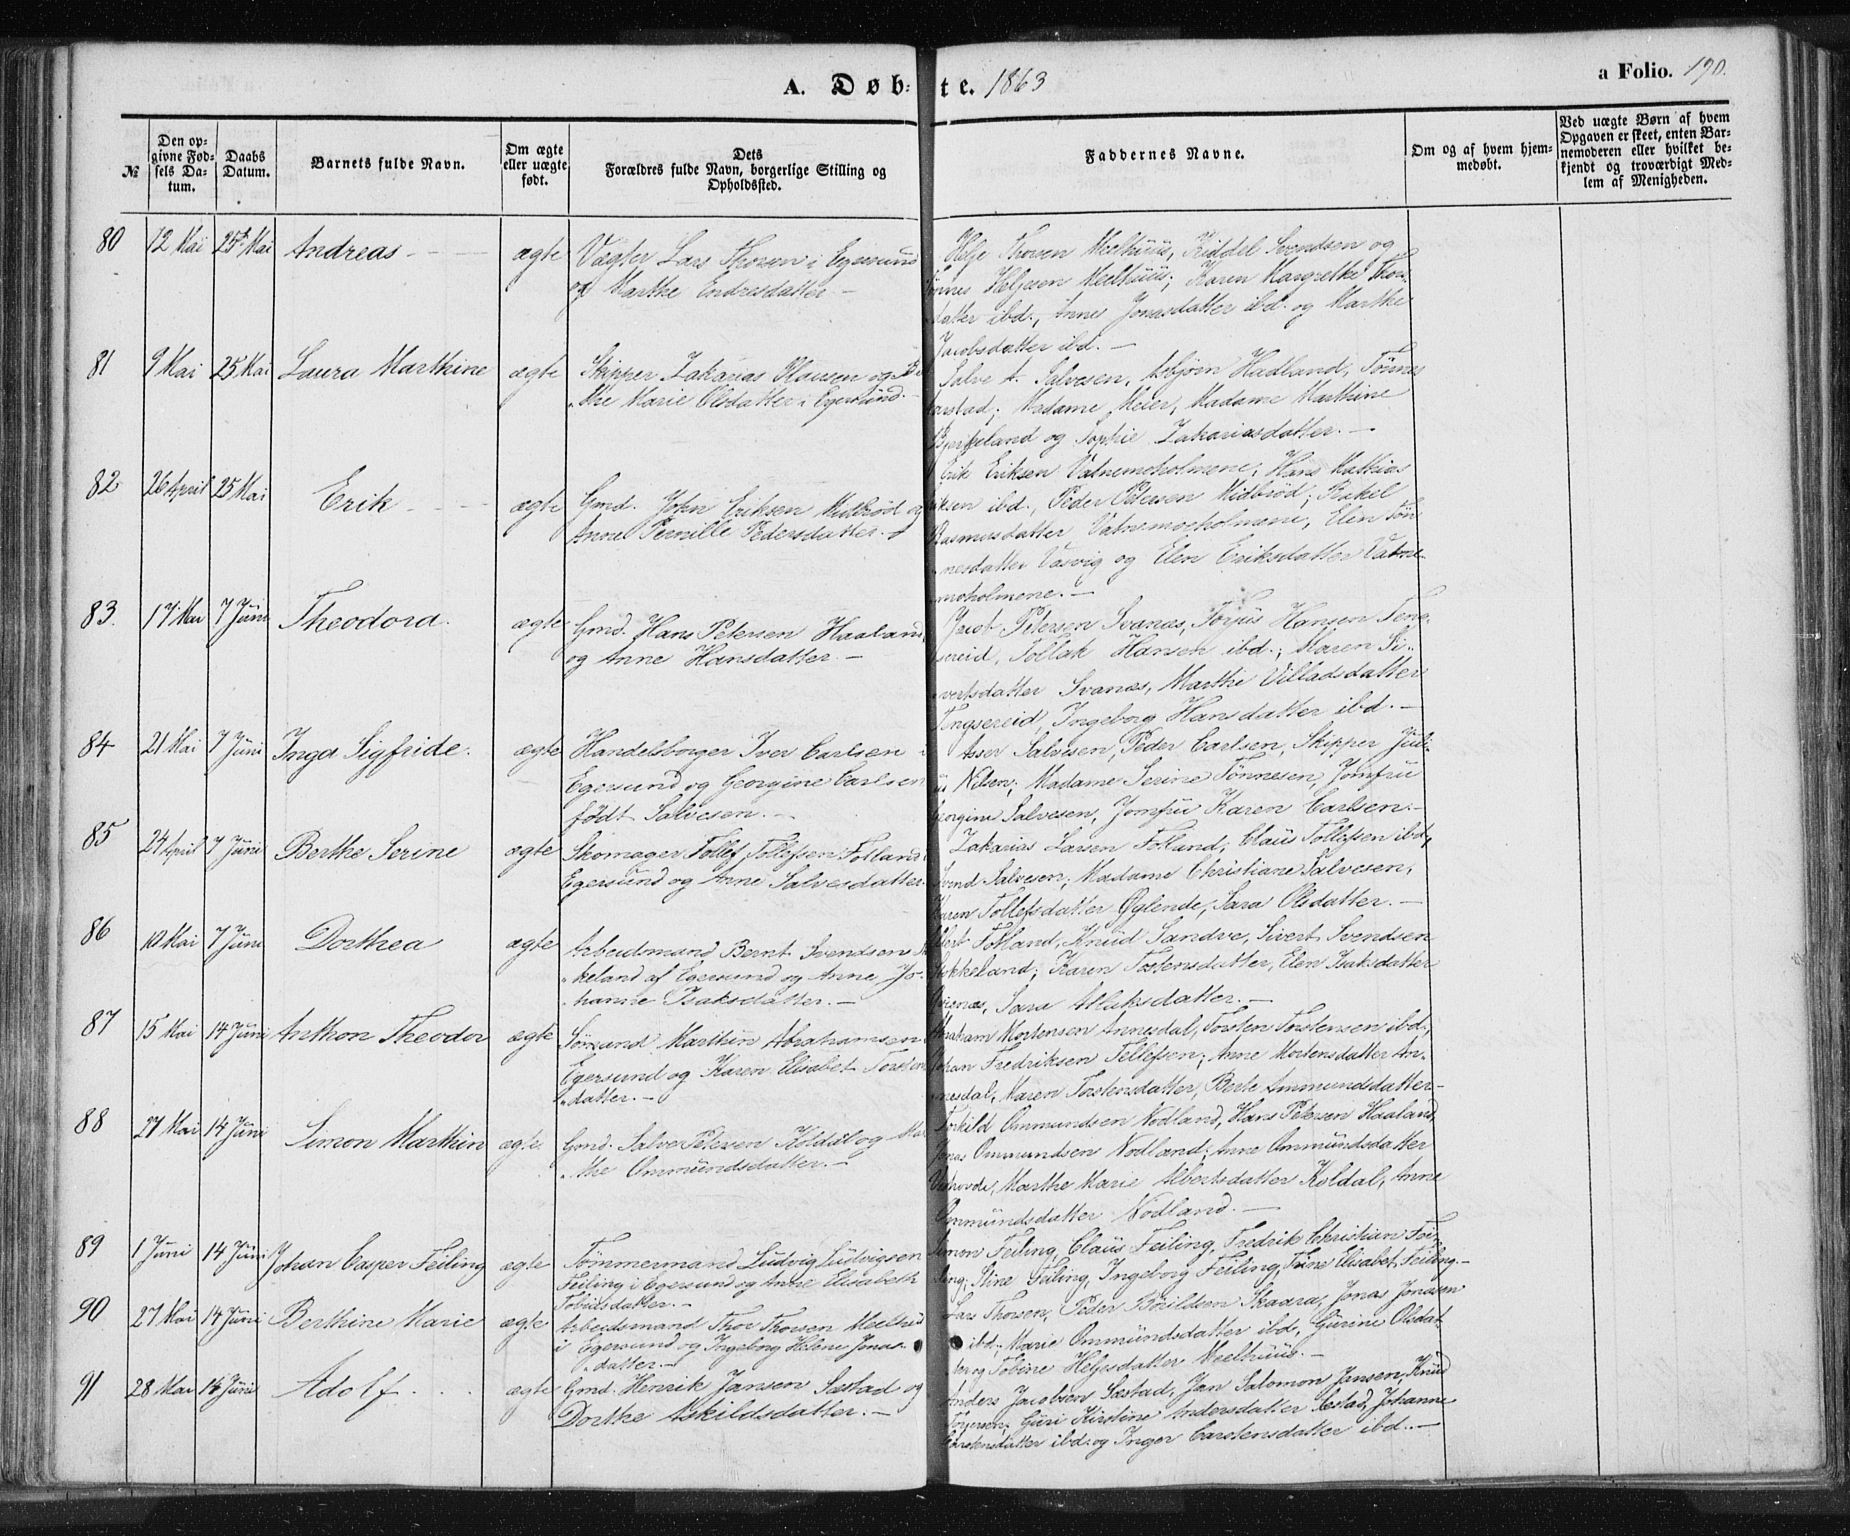 A. Døb-te. 1863
a Folio. 190.
№
Den op-
givne Fød-
sels Da-
tum.
Daabs
Datum.
Barnets fulde Navn.
Om ægte
eller uægte
født.
Dets
Forældres fulde Navn, borgerlige Stilling og
Opholdssted.
Faddernes Navne.
Om og af hvem hjem-
medøbt.
Ved uægte Børn af hvem
Opgaven er skeet, enten Bar-
nemoderen eller hvilket be-
kjendt og troværdigt Med-
lem af Menigheden.
80 12 Mai 25 Mai Andreas ægte
Vægter Lars Thorsen i Egersund
og Marthe Endresdatter. -
Helje Thorsen Meelhuus, Svendsen og
Heljesen Meelhuus; Karen Margrethe Thor-
datter ibd., Anne Jonasdatter ibd. og Marthe
Jacobsdatter ibd. -
81 9 Mai 25 Mai Laura Marthine ægte
Skipper Zakarias Olausen og
the Marie Olsdatter i Egersund. -
Salve A. Salvesen, Asbjørn Hadland, Tønnes
Madame Meier, Madame Marthine
og Sophie Zakariasdatter. -
82 26 April 25 Mai Erik ægte
Gmd. John Eriksen Midbrød og
Anne Pernille Pedersdatter.
Erik Eriksen Vatnemoholmene; Hans Mathias
iksen ibd., Peder Petersen Midbrød; Rakel
Rasmusdatter Vatnemoeholmene, Elen Tøn
nesdatter Vasvig og Elen Eriksdatter Vatne-
moholmene. -
83. 17 Mai 7 Juni Theodora. ægte
Gmd. Hans Petersen Haaland,
og Anne Hansdatter. -
Petersen Svanæs, Torjus Hansen Teng-
sereid, Tollak Hansen ibd.; Maren Si-
vertsdatter Svanæs, Marthe Villadsdatter
Tngsereid, Ingeborg Hansdatter ibd. -
84 21 Mai 7 Juni Inga Sigfride. ægte
Handelsborger Iver Carlsen i
Egersund og Georgine Carlsen
født Salvesen. -
Asser Salvesen, Peder Carlsen, Skipper Juli-
us Nelsen; Madame Serine Tønnesen, Jomfru
Georgine Salvesen, Jomfru Karen Carlsen. -
85 24 April 7 Juni Berthe Serine ægte
Skomager Tollef Tollefsen Fotland i
Egersund og Anne Salvesdatter.
Zakarias Larsen Fotland, Claus Tollefsen ibd,
Svend Salvesen; Madame Christiane Salvesen,
Karen Tollefsdatter Øglende, Sara Olsdatter. -
86 10 Mai 7 Juni Dorthea ægte
Arbeidsmand Bernt Svendsen
keland af Egersund og Anne Jo-
hanne Isaksdatter. -
Fotland, Knud Sandve, Sivert Svendsen
Stokkeland; Karen Tostensdatter, Elen Isaksdatter
Sara Atlaksdatter. -
87 15 Mai 14 Juni Anthon Theodor ægte
Sømand Marthin Abrahamsen
Egersund og Karen Elisabet Torsten
datter. -
Abraham Mortensen Annesdal, Torsten Torstensen ibd,
Johan Fredriksen Tollefsen; Anne Mortensdatter An-
nesdal, Maren Torstensdatter, Berte Ammundsdatter -
88 27 Mai 14 Juni Simon Marthin ægte
Gmd. Salve Petersen Koldal og Mar
the Ommundsdatter. -
Torkild Ommundsen Nodland, Hans Petersen Haaland,
Jonas Ommundsen Nodland; Anne Ommundsdatter
Marthe Marie Albertsdatter Koldal, Anne
Ommundsdatter Nodland. -
89 1 Juni 14 Juni Johan Casper Feiling ægte
Tømmermand Ludvig Ludvigsen
Feiling i Egersund og Anne Elisabeth
Tobiasdatter. -
Simon Feiling, Claus Feiling, Fredrik Christian Fei-
ling; Stine Feiling, Ingeborg Feiling, Trine Elisabet Feiling. -
90 27 Mai 14 Juni Berthine Marie ægte
Arbeidsmand Thor Thorsen Meelhus
i Egersund og Ingeborg Helene Jonas-
datter. -
Lars Thorsen, Peder Bøildsen Skaara, Jonas Jonasen
ibd; Marie Ommundsdatter ibd, Gurine Olsdat
ter og Tobine Heljesdatter Meelhuus. -
91 28 Mai 14 Juni Adolf ægte
Gmd. Henrik Jansen Sæstad og
Dorthe Askildsdatter. -
Anders Jacobsen Sæstad, Jan Salomon Jansen, Knud
Guri Kirstine Andersdatter Sæstad, Johanne
Carstensdatter ibd. og Inger Carstensdatter ibd. -